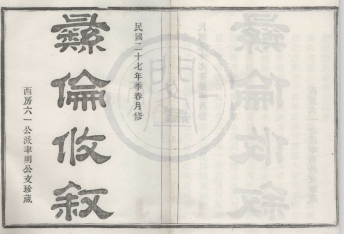 民國二十七年季春月修
彞倫攸敘
西房六一公派聿明公支珍藏